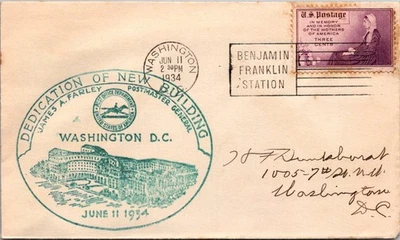 U.S. Postage
IN MEMORY
AND IN HONOR
OF THE MOTHERS
OF AMERICA
THREE
CENTS
WASHINGTON
JUN 11
2 PM
1934
BENJAMIN
FRANKLIN
STATION
DEDICATION OF NEW BUILDING
JAMES A. FARLEY POSTMASTER GENERAL
WASHINGTON D.C.
JUNE 11 1934
H F
1005-7th St. N.W.
Washington
D.C.